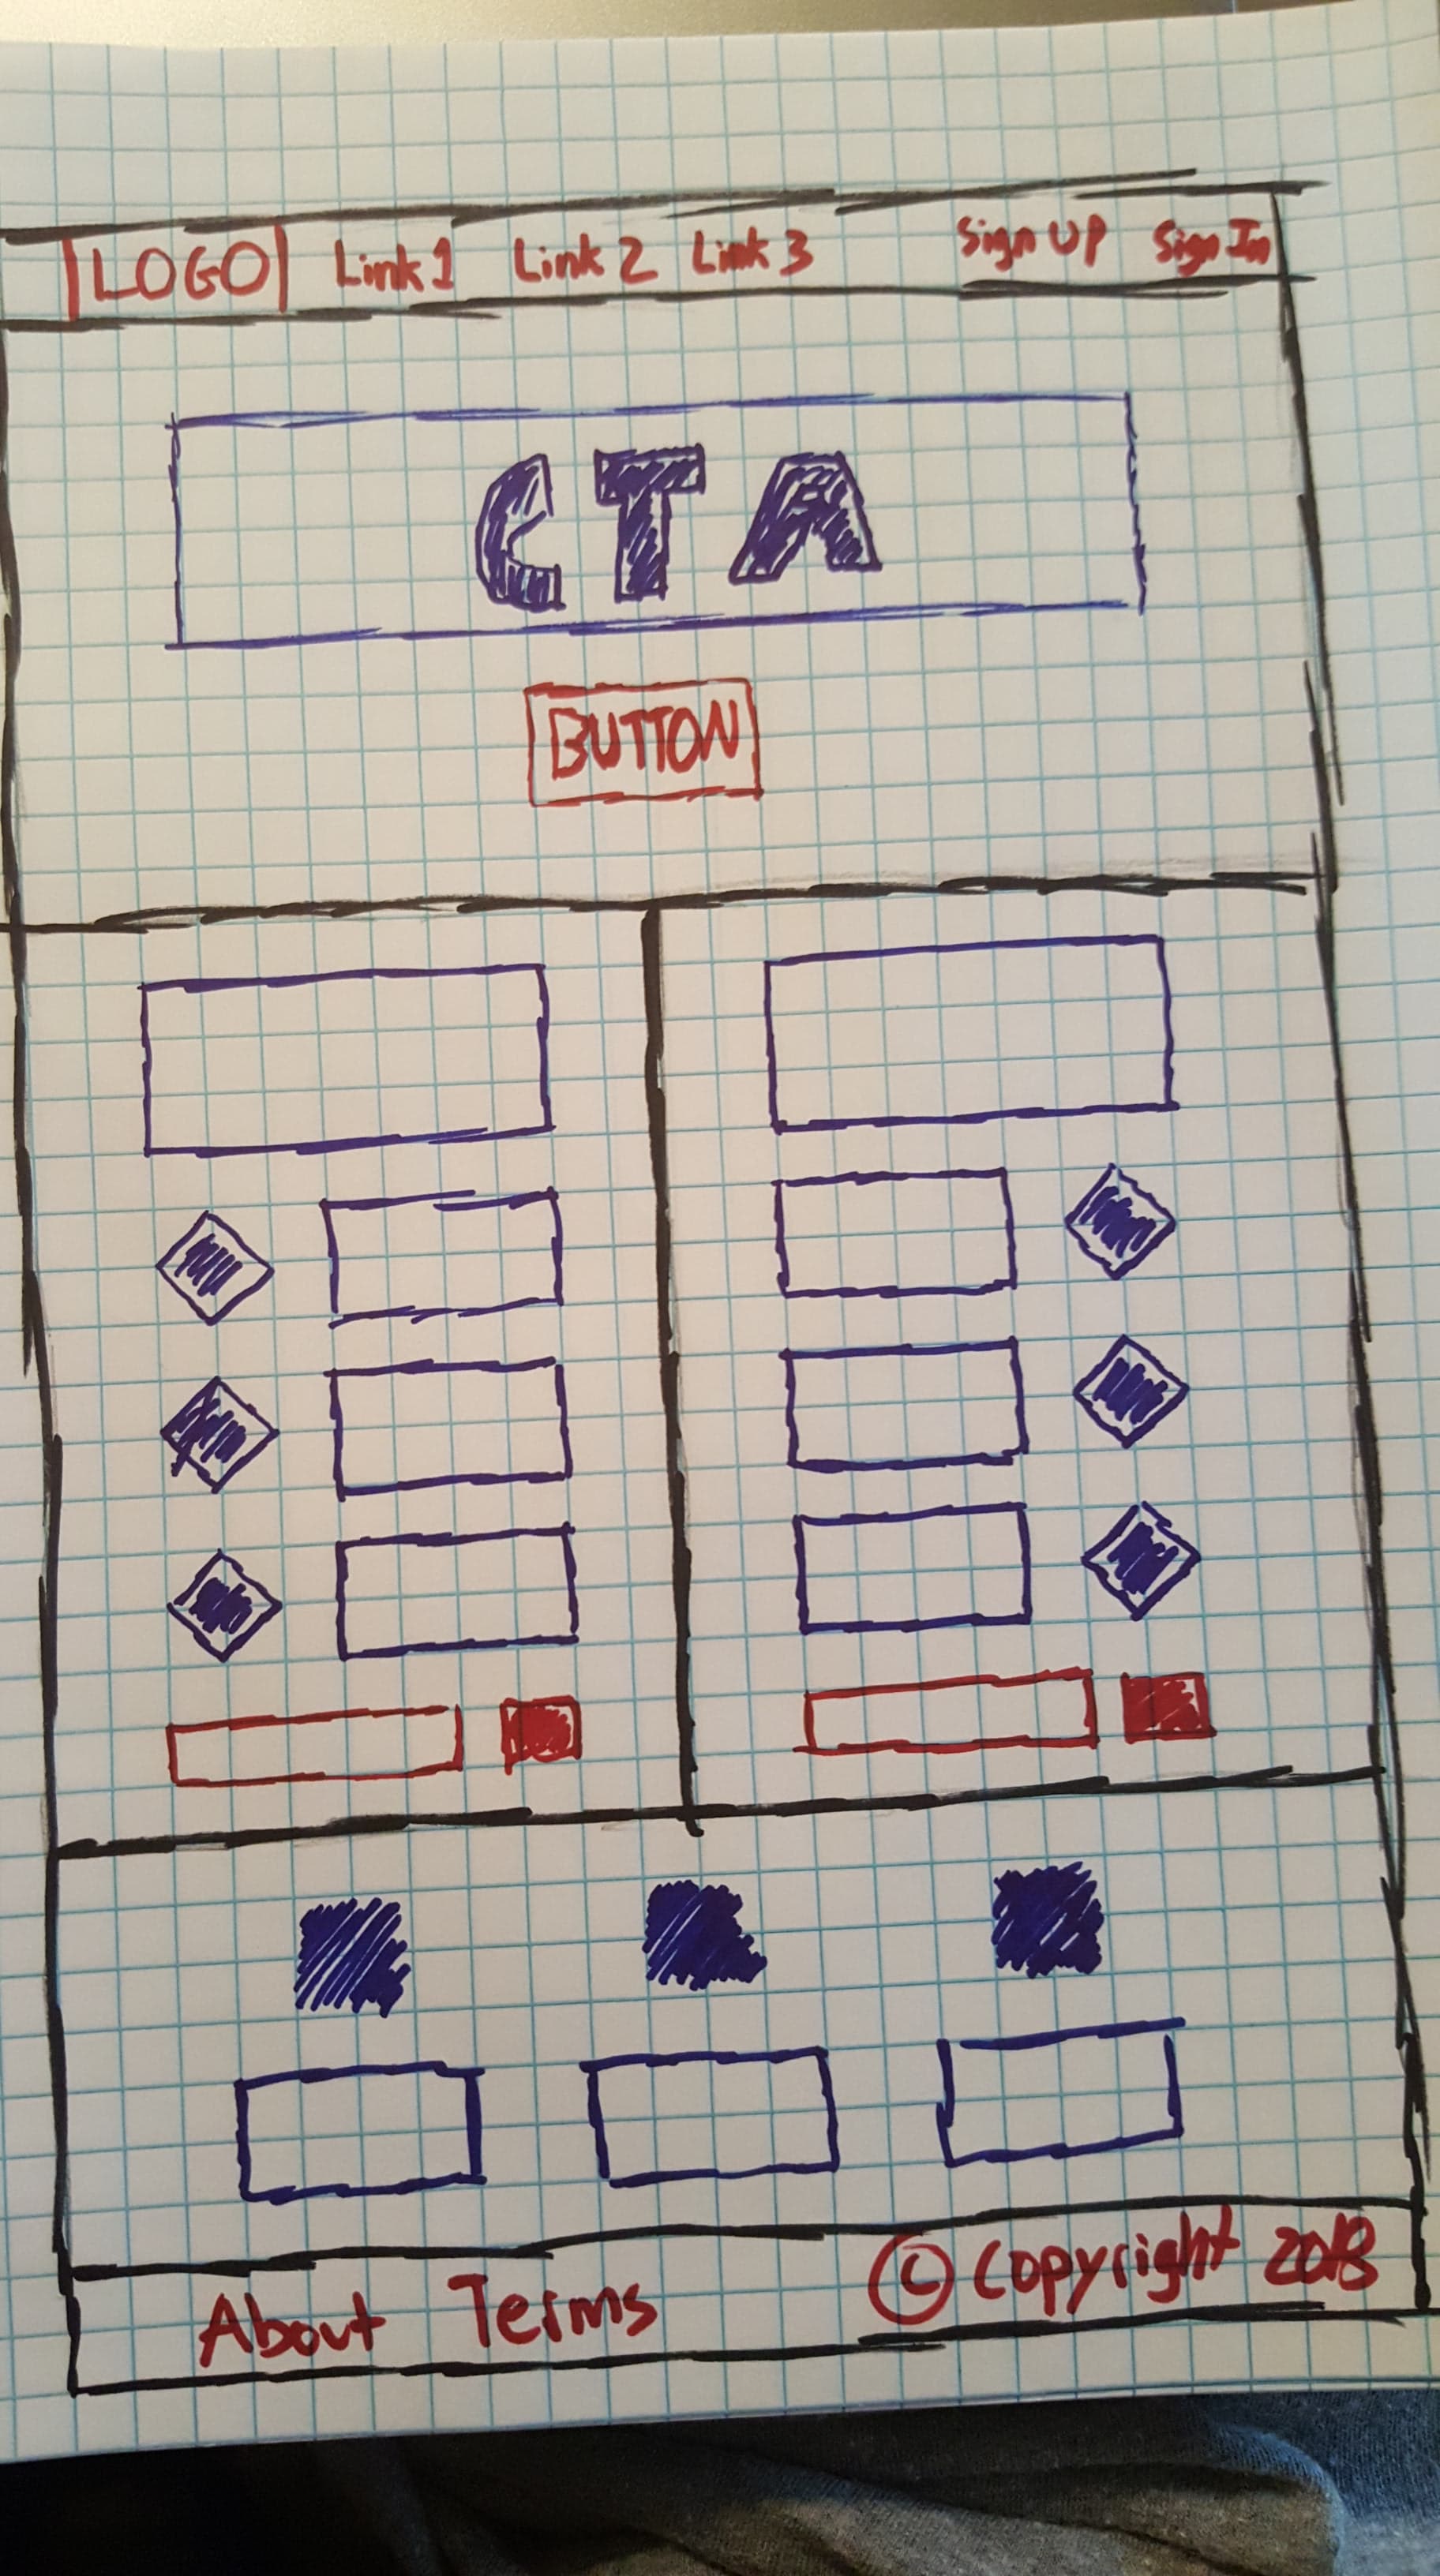 LOGO Link 1 Link 2 Link 3 Sign UP Sign In
CTA
BUTTON
About Terms © Copyright 2018